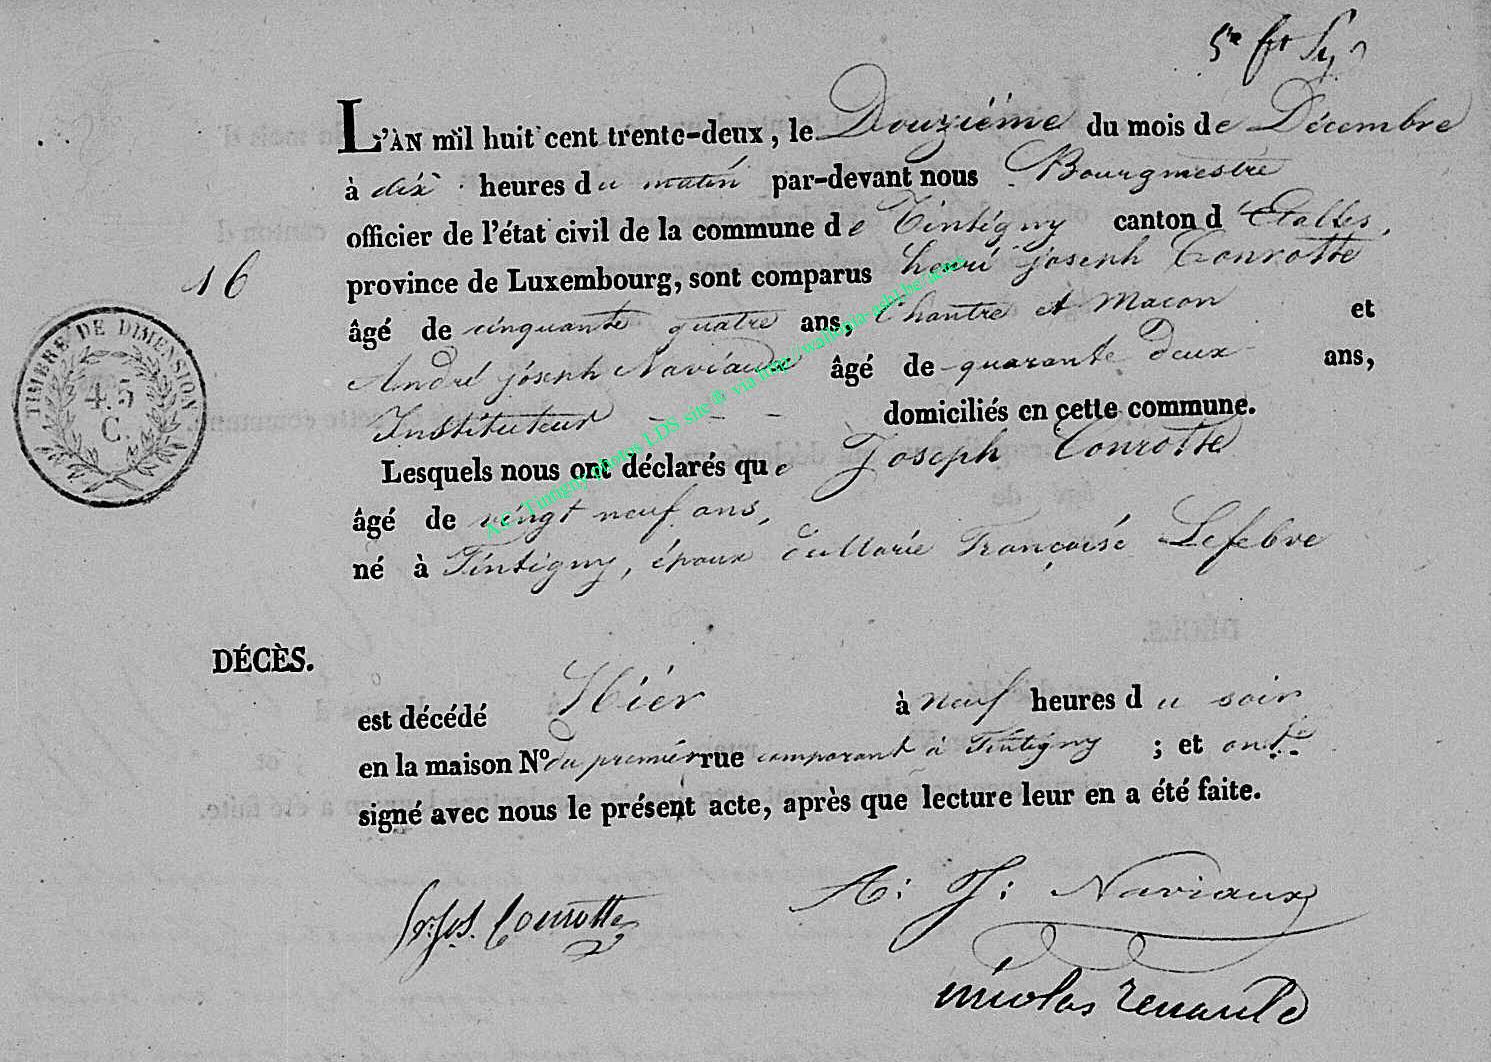 L'AN mil huit cent trente-deux, le Douzième du mois de Décembre
à dix heures du matin par-devant nous Bourgmestre
officier de l'état civil de la commune de Tintigny canton d'Etalles,
province de Luxembourg, sont comparus henri joseph Conrotte
âgé de cinquante quatre ans, Chantre et Macon et
André joseph Naviaux âgé de quarante deux ans,
Instituteur - - - domiciliés en cette commune.
Lesquels nous ont déclarés que Joseph Conrotte
âgé de vingt neuf ans,
né à Tintigny, époux de Marie Françoise Lefebvre
16
TIMBRE DE DIMENSION
45
C.
DÉCÈS.
est décédé Hier à neuf heures du soir
en la maison N° du premier rue comparant à Tintigny ; et ont
signé avec nous le présent acte, après que lecture leur en a été faite.
A: J: Naviaux
Conrotte
nicolas renauld
A.C. Tintigny photos LDS site ® via http://wallonia-asbl.be/actes